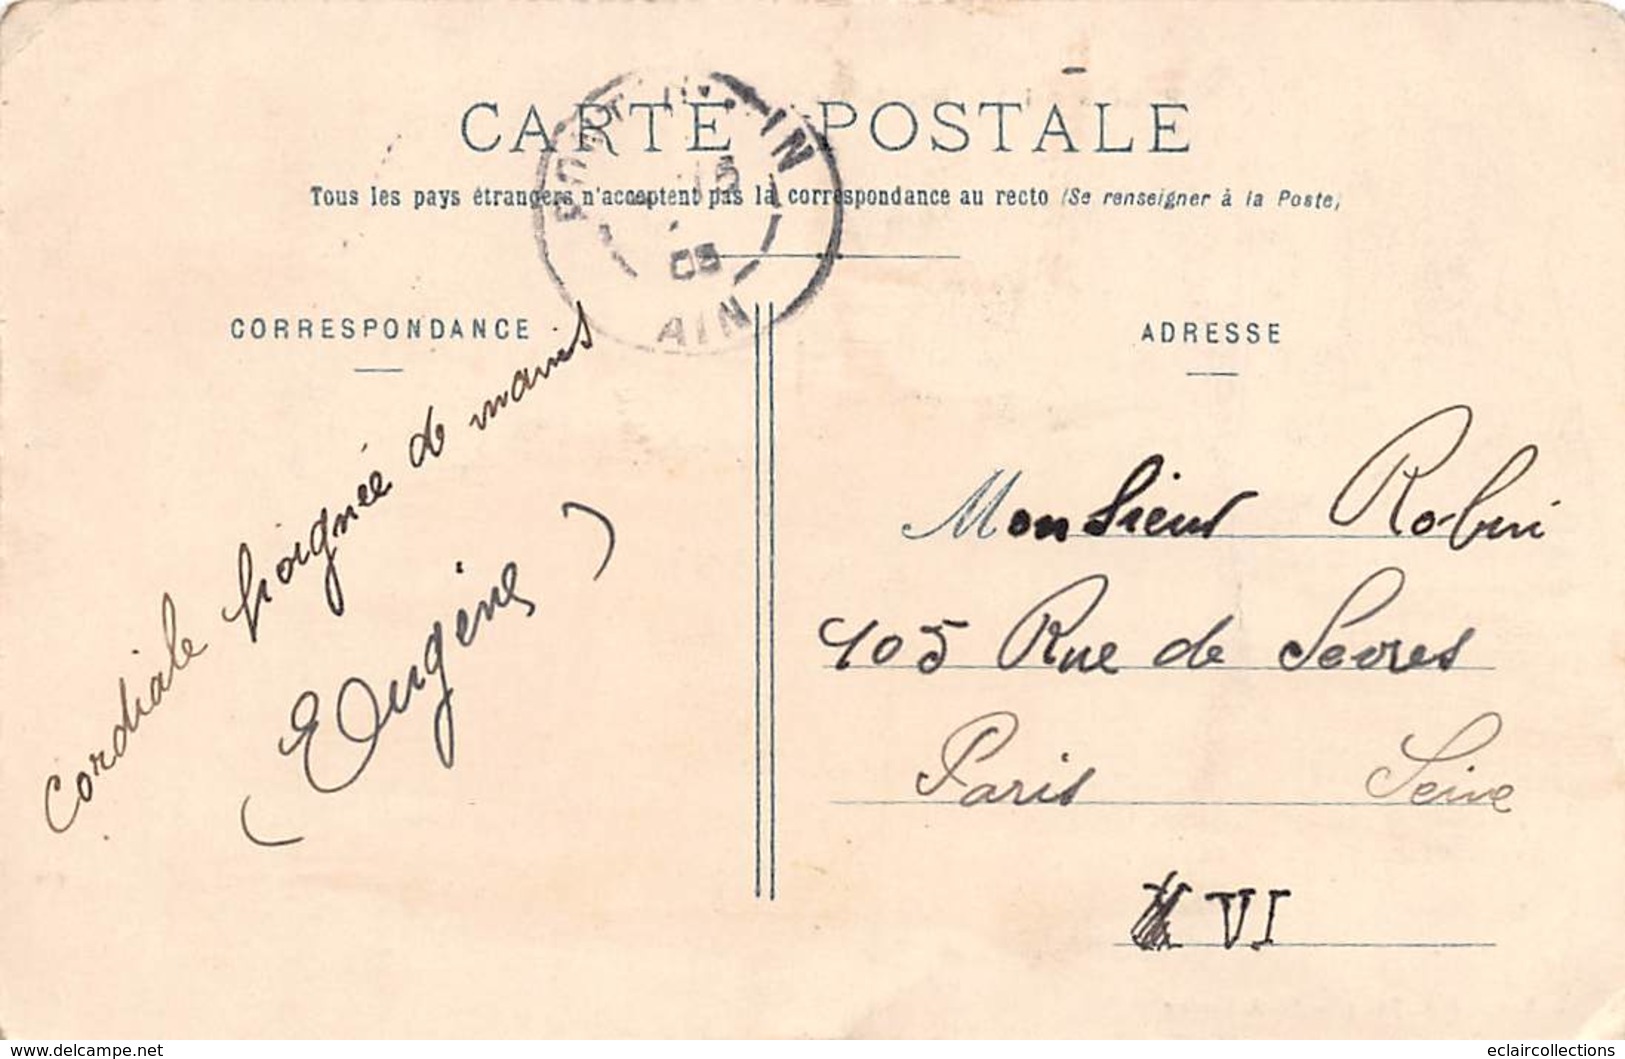 CARTE POSTALE
Tous les pays étrangers n'acceptent pas la correspondance au recto (Se renseigner à la Poste)
AIN
CORRESPONDANCE
Cordiale poignée de mains
(Eugène)
ADRESSE
Monsieur Robin
105 Rue de Sevres
Paris Seine
VI
www.delcampe.net
eclaircollections